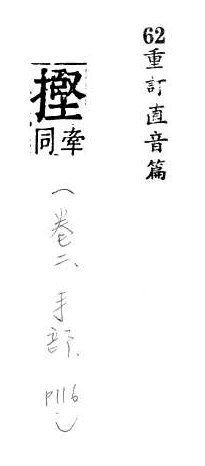 62重訂直音篇
摼
牽同
(卷二、手部、P116)